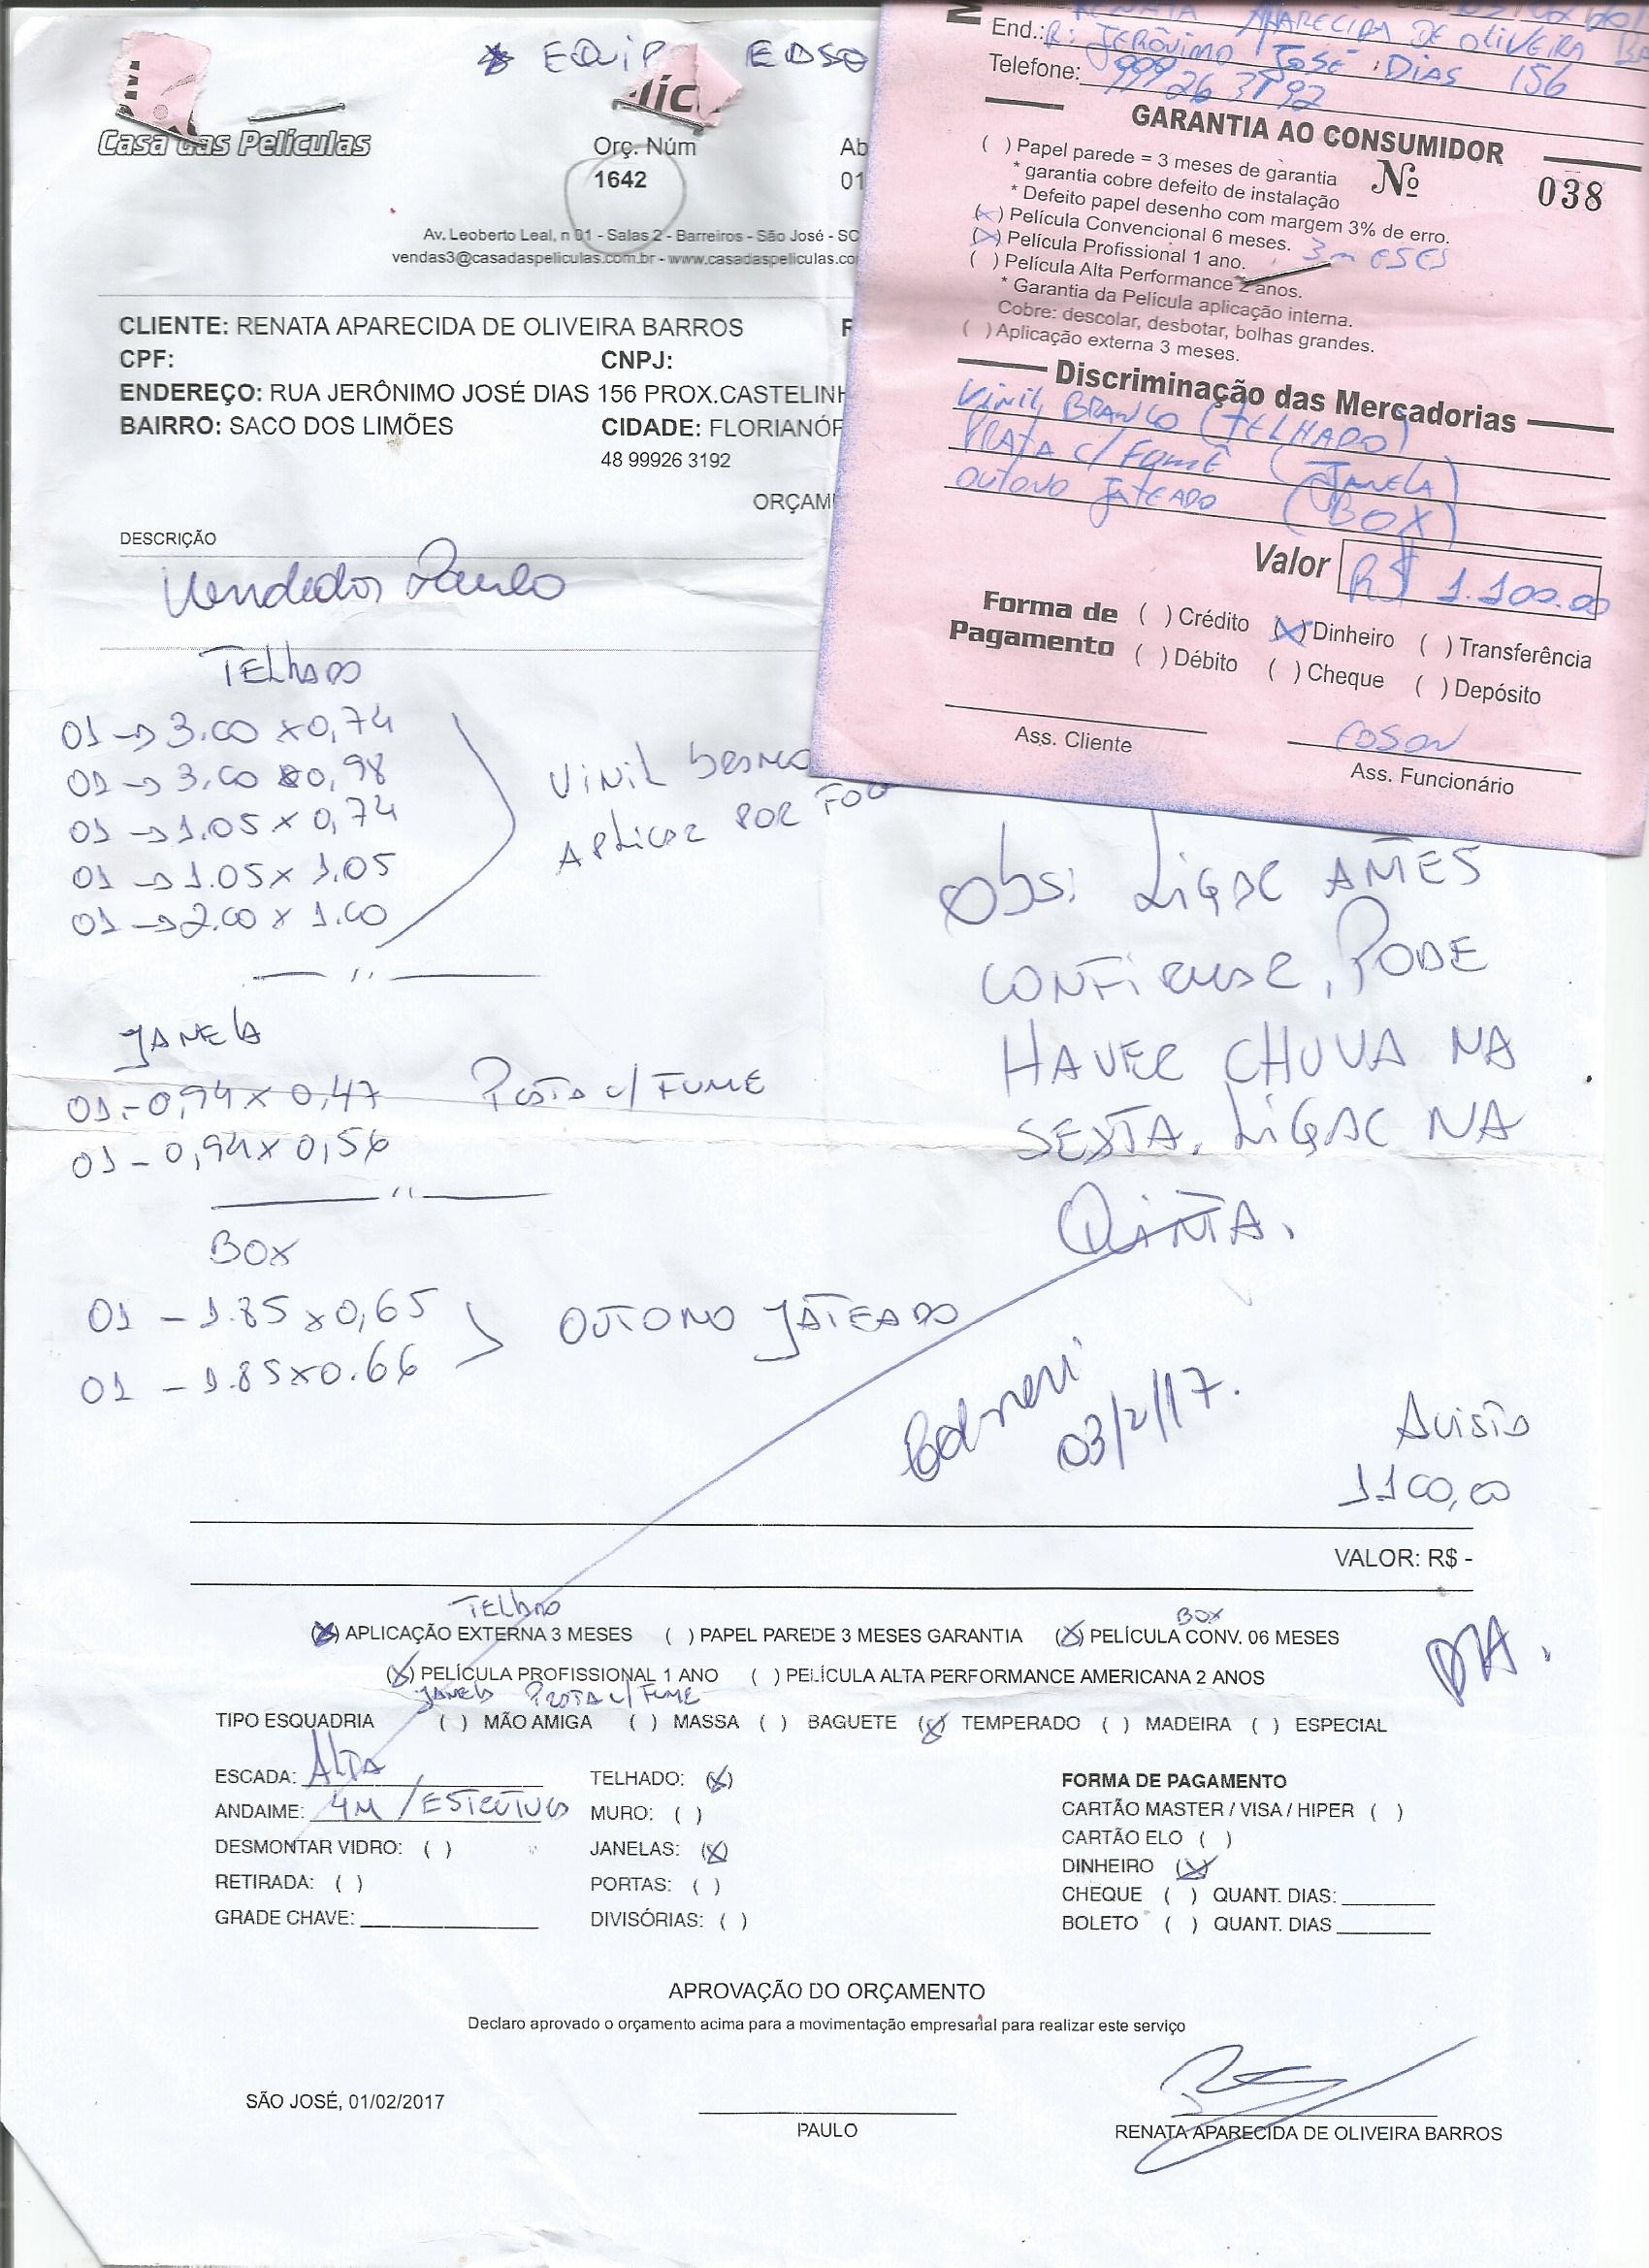 * EQUIP EDSO
Casa das Películas
Orç. Núm
Ab
1642
01
Av. Leoberto Leal, n 91 - Salas 2 - Barreiros - São José - SC
vendas3@casadaspeliculas.com.br - www.casadaspeliculas.co
CLIENTE: RENATA APARECIDA DE OLIVEIRA BARROS
CPF: CNPJ:
ENDEREÇO: RUA JERÔNIMO JOSÉ DIAS 156 PROX.CASTELINH
BAIRRO: SACO DOS LIMÕES CIDADE: FLORIANÓP
48 99926 3192
ORÇAM
DESCRIÇÃO
Vendedor Paulo
RENATA APARECIDA DE OLIVEIRA BA
End.: R: JERÔNIMO JOSÉ DIAS 156
Telefone: 99926 3192
GARANTIA AO CONSUMIDOR
( ) Papel parede = 3 meses de garantia
* garantia cobre defeito de instalação
Nº 038
* Defeito papel desenho com margem 3% de erro.
(X) Película Convencional 6 meses.
(X) Película Profissional 1 ano. 3 mESES
( ) Película Alta Performance 2 anos.
* Garantia da Película aplicação interna.
Cobre: descolar, desbotar, bolhas grandes.
( ) Aplicação externa 3 meses.
Discriminação das Mercadorias
VINIL BRANCO (TELHADO)
PRATA C/ FUMÊ (JANELA)
OUTONO JATEADO (BOX)
Valor R$ 1.100.00
Forma de Pagamento ( ) Crédito (X) Dinheiro ( ) Transferência
( ) Débito ( ) Cheque ( ) Depósito
EDSON
Ass. Cliente Ass. Funcionário
TELHADO
01 -> 3.00 x 0,74
01 -> 3.00 x 0,98
01 -> 1.05 x 0,74
01 -> 1.05 x 1,05
01 -> 2.00 x 1.00
VINIL BRANCO
APLICAR POR FO
Obs: LIGAR ANTES
CONFIRMAR, PODE
HAVER CHUVA NA
SEXTA. LIGAR NA
QUINTA.
JANELA
01 - 0,94 x 0,47 PRATA C/ FUME
01 - 0,94 x 0,56
BOX
01 - 1.85 x 0,65
01 - 1.85 x 0.66
OUTONO JATEADO
03/2/17.
AVISTA
1100,00
VALOR: R$ -
TELHADO BOX
(X) APLICAÇÃO EXTERNA 3 MESES ( ) PAPEL PAREDE 3 MESES GARANTIA (X) PELÍCULA CONV. 06 MESES
(X) PELÍCULA PROFISSIONAL 1 ANO ( ) PELÍCULA ALTA PERFORMANCE AMERICANA 2 ANOS
JANELA PRATA C/ FUME
TIPO ESQUADRIA ( ) MÃO AMIGA ( ) MASSA ( ) BAGUETE (X) TEMPERADO ( ) MADEIRA ( ) ESPECIAL
ESCADA: ALTA TELHADO: (X) FORMA DE PAGAMENTO
ANDAIME: 4M / ESTRUTURA MURO: ( ) CARTÃO MASTER / VISA / HIPER ( )
DESMONTAR VIDRO: ( ) JANELAS: (X) CARTÃO ELO ( )
RETIRADA: ( ) PORTAS: ( ) DINHEIRO (X)
GRADE CHAVE: DIVISÓRIAS: ( ) CHEQUE ( ) QUANT. DIAS:
BOLETO ( ) QUANT. DIAS
APROVAÇÃO DO ORÇAMENTO
Declaro aprovado o orçamento acima para a movimentação empresarial para realizar este serviço
SÃO JOSÉ, 01/02/2017
PAULO
RENATA APARECIDA DE OLIVEIRA BARROS